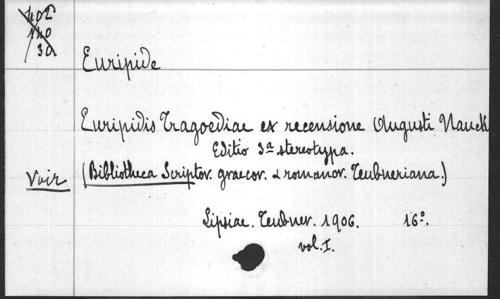 402
140
30
Euripide
Euripidis Tragoediae ex recensione Augusti Nauck
Editio 3ª stereotypa.
Voir (Bibliotheca Scriptor. graecor. & romanor. Teubneriana.)
Lipsiae. Teubner. 1906. 16º.
vol. I.